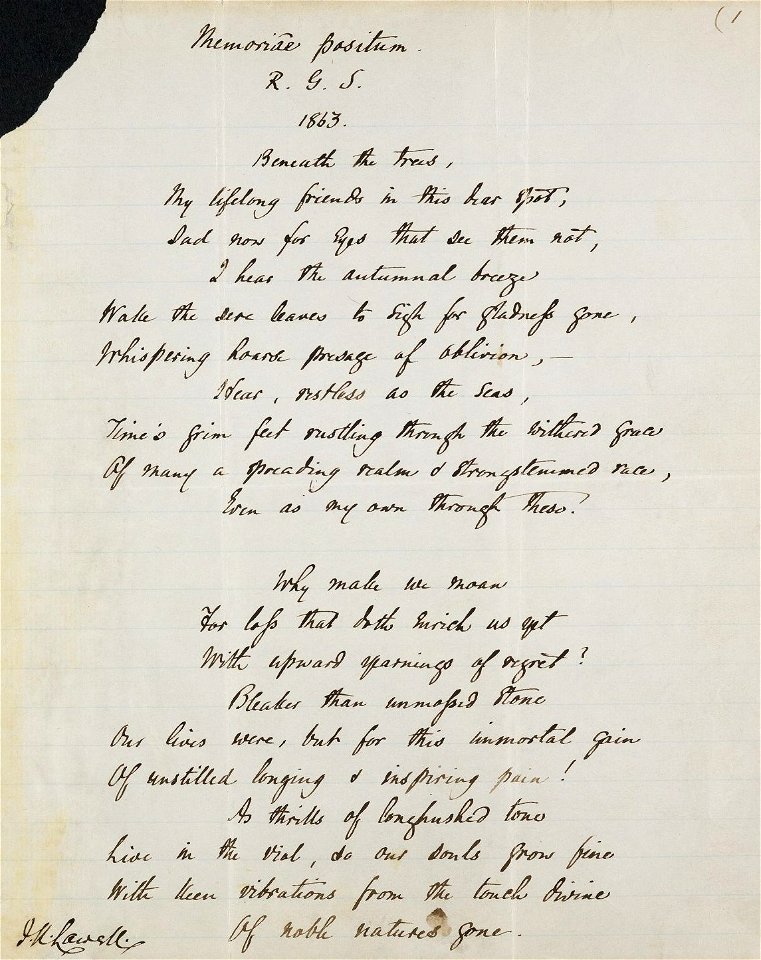 (1
Memoriæ positum.
R. G. S.
1863.
Beneath the trees,
My lifelong friends in this dear spot,
Sad now for Eyes that see them not,
I hear the autumnal breeze
Wake the sere leaves to sigh for gladness gone,
Whispering hoarse presage of oblivion, —
Hear, restless as the Seas,
Time's grim feet rustling through the withered grace
Of many a spreading realm & strongstemmed race,
Even as my own through these.
Why make we moan
For loss that doth Enrich us yet
With upward yearnings of regret?
Bleaker than unmossed Stone
Our lives were, but for this immortal gain
Of unstilled longing & inspiring pain!
As thrills of longhushed tone
Live in the viol, so our souls grow fine
With keen vibrations from the touch divine
Of noble natures gone.
J. R. Lowell.